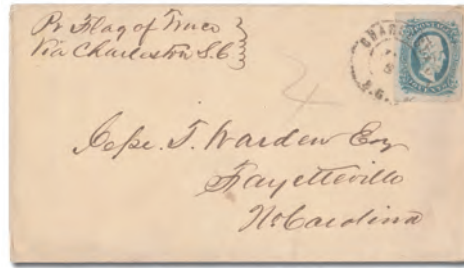 Pr Flag of Truce
Via Charleston S.C
CHAR
S.C.
4
T. Warden Esq
Fayetteville
No Carolina